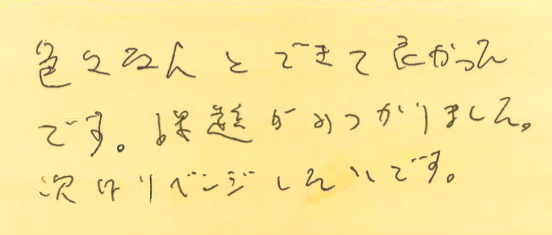 色々な人とできて良かった
です。課題がみつかりました。
次はリベンジしたいです。